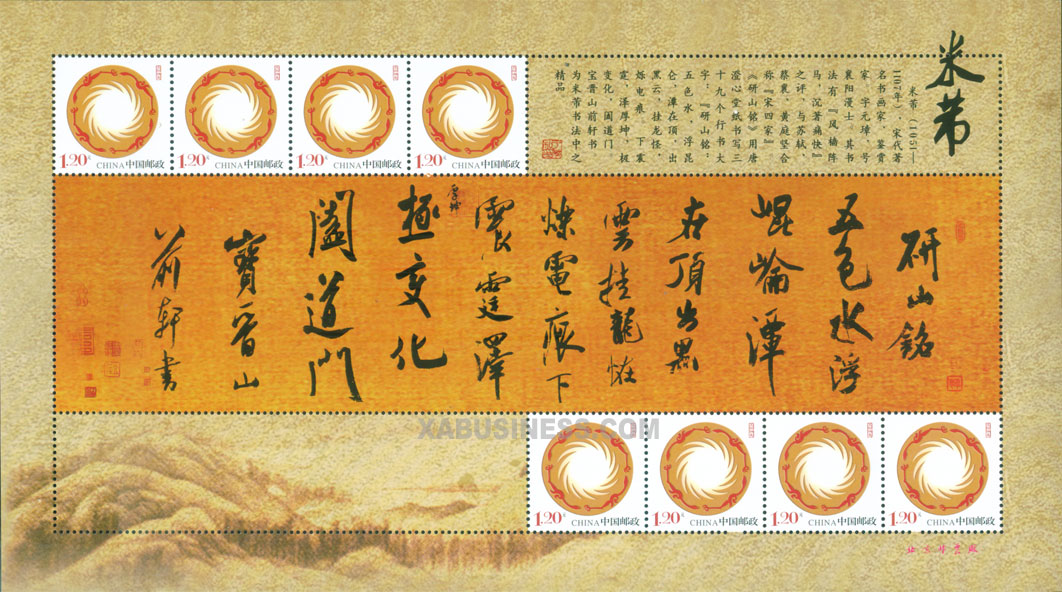 米芾
米芾（1051—
1107年），宋代著
名书画家、鉴赏
家，字元璋，号
襄阳漫士，其书
法有『风樯阵
马，沉著痛快』
之评，与苏轼、
蔡襄、黄庭坚合
称『宋四家』。
《研山铭》用唐
澄心堂纸书写三
十九个行书大
字：『研山铭：
五色水，浮昆
仑，潭在顶，出
黑云，挂龙怪，
烁电痕，下震
霆，泽厚坤，极
变化，阖道门
宝晋山前轩书
为米芾书法中之
精品
1.20元
CHINA中国邮政
1.20元
CHINA中国邮政
1.20元
CHINA中国邮政
1.20元
CHINA中国邮政
研山銘
五色水浮
崐崘潭
在頂出黑
雲挂龍怪
爍電痕下
震霆澤
厚坤
極變化
闔道門
寶晉山
前軒書
XABUSINESS.COM
1.20元
CHINA中国邮政
1.20元
CHINA中国邮政
1.20元
CHINA中国邮政
1.20元
CHINA中国邮政